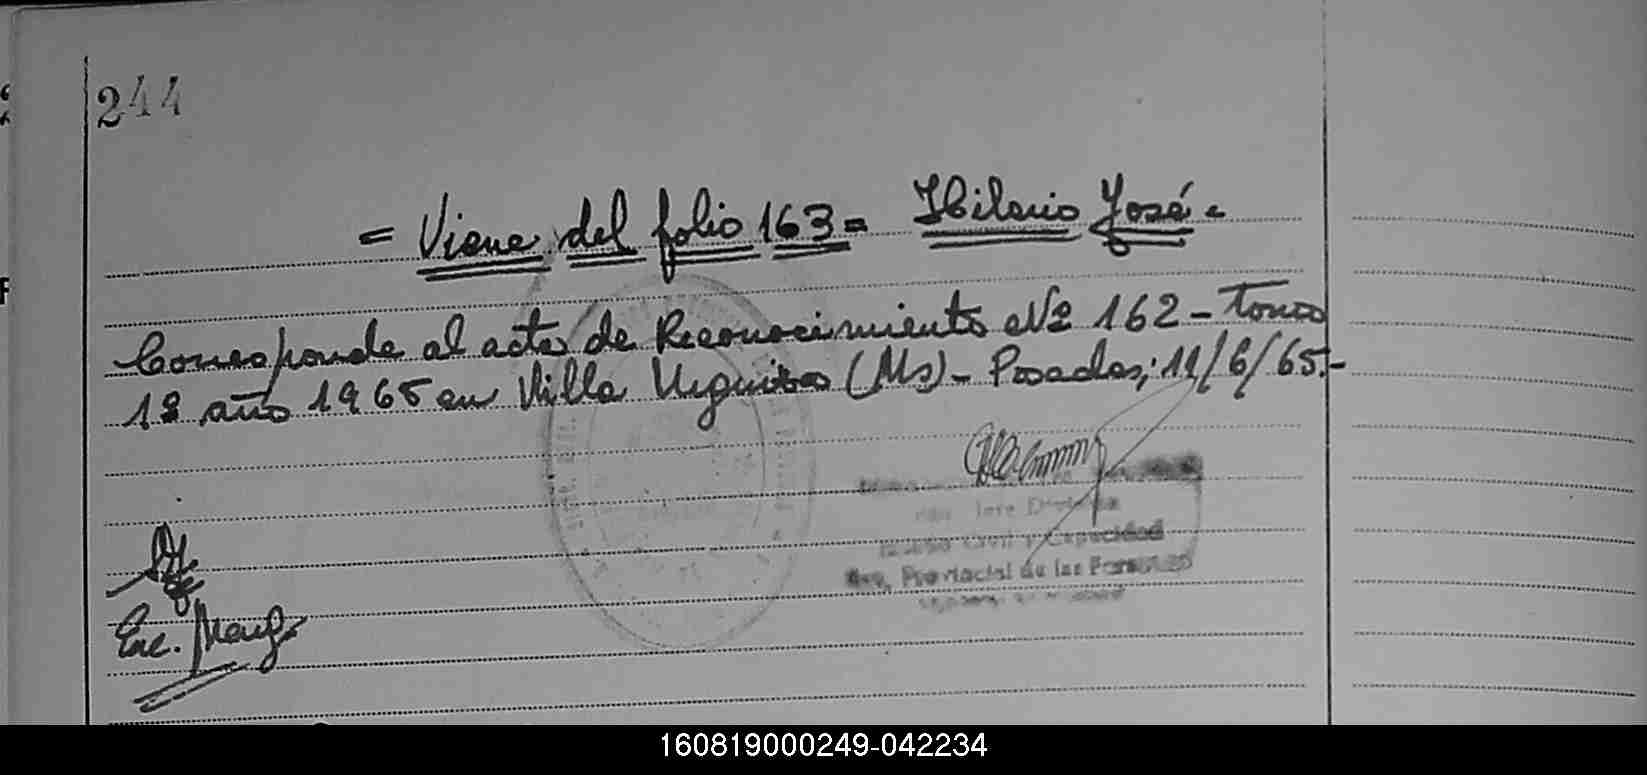 244
= Viene del folio 163 = Hilario José -
Corresponde al acta de Reconocimiento Nº 162 - Tomo
1º año 1965 en Villa Urquiza (Ms) - Posadas, 11/6/65.-
Jefe
Civil y Capacidad
Reg. Provincial de las Personas
Enc. Marg.
160819000249-042234